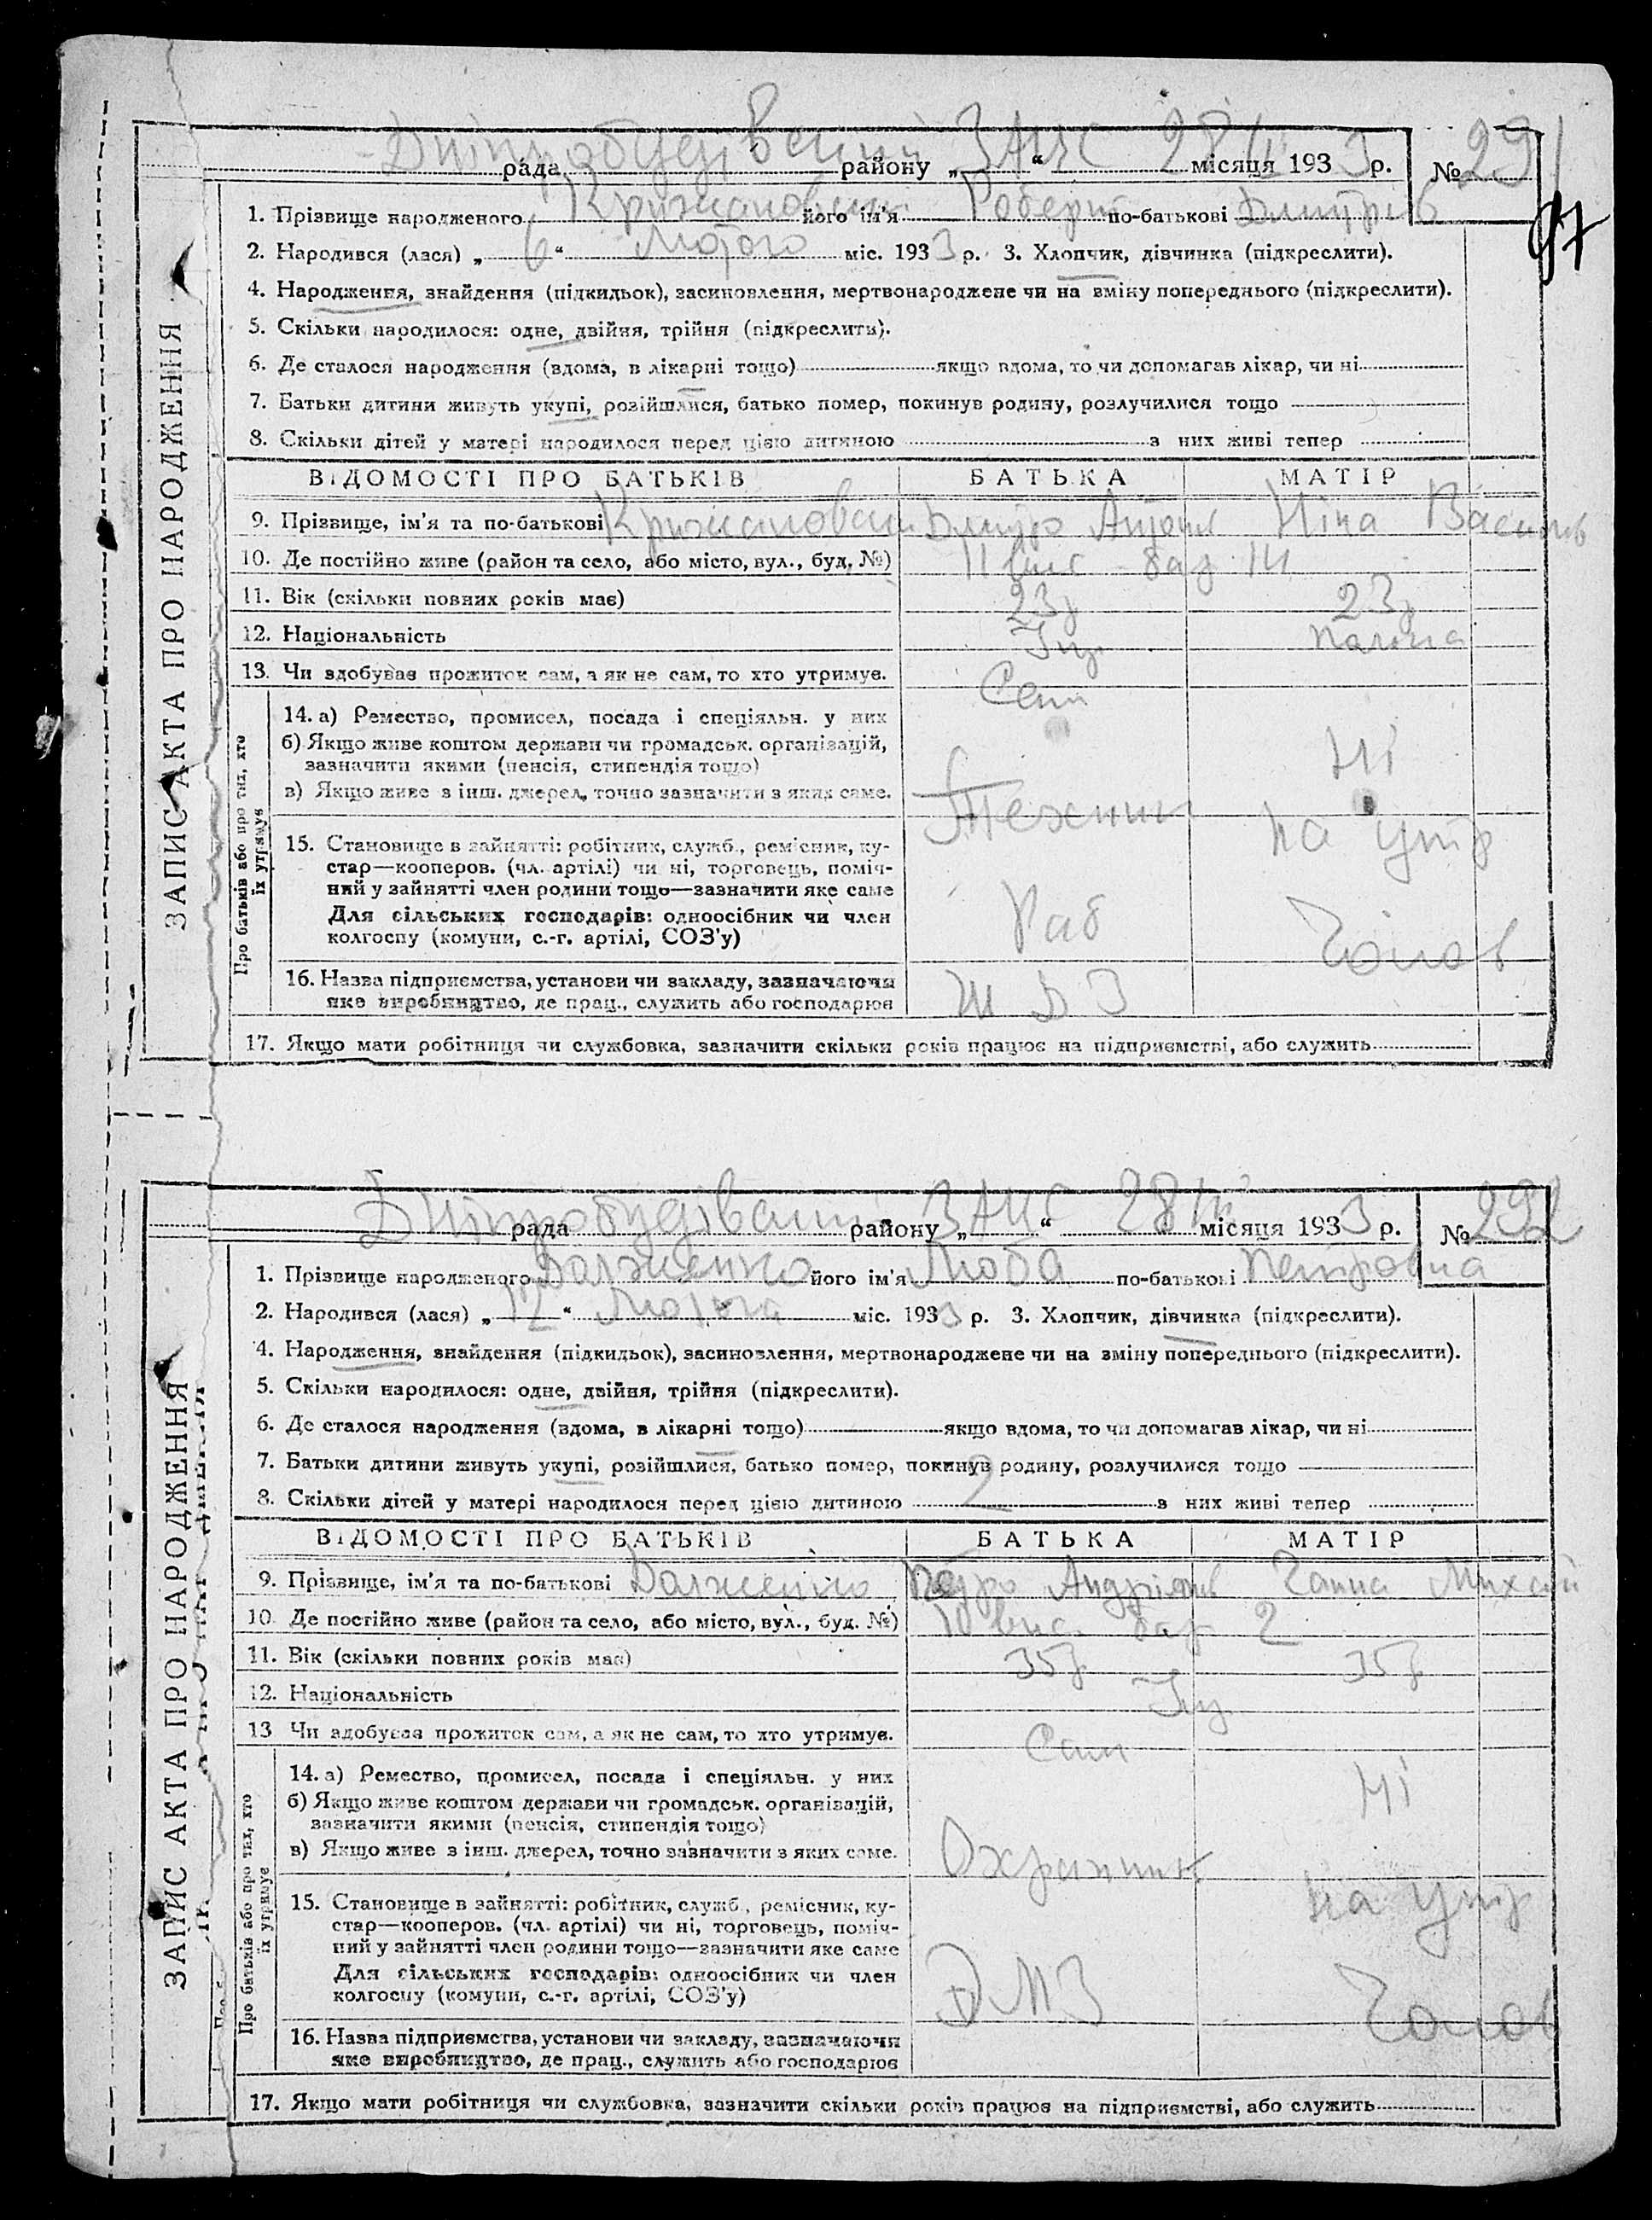 Дніпробудівський ЗАГС 28/ІІ
рада району „ “ місяця 1933 р. № 291
97
1. Прізвище народженого Крижановський його ім'я Роберт по-батькові Дмитрів
2. Народився (лася) „ 6 “ Лютого міс. 1933 р. 3. Хлопчик, дівчинка (підкреслити).
4. Народження, знайдення (підкидьок), засиновлення, мертвонароджене чи на зміну попереднього (підкреслити).
5. Скільки народилося: одне, двійня, трійня (підкреслити).
6. Де сталося народження (вдома, в лікарні тощо) якщо вдома, то чи допомагав лікар, чи ні
7. Батьки дитини живуть укупі, розійшлися, батько помер, покинув родину, розлучилися тощо
8. Скільки дітей у матері народилося перед цією дитиною з них живі тепер
ВІДОМОСТІ ПРО БАТЬКІВ БАТЬКА МАТІР
9. Прізвище, ім'я та по-батькові Дмитро Антон Ніна Василів
10. Де постійно живе (район та село, або місто, вул., буд. №) 11 вис бар 14
11. Вік (скільки повних років має) 23р 23р
12. Національність Укр
13. Чи здобуває прожиток сам, а як не сам, то хто утримує. Сам
14. а) Ремество, промисел, посада і спеціяльн. у них
б) Якщо живе коштом держави чи громадськ. організацій,
зазначити якими (пенсія, стипендія тощо) Ні
в) Якщо живе з інш. джерел, точно зазначити з яких саме. Технік
15. Становище в зайнятті: робітник, служб., ремісник, ку-
стар—кооперов. (чл. артілі) чи ні, торговець, поміч-
ний у зайнятті член родини тощо—зазначити яке саме на утр
Для сільських господарів: одноосібник чи член
колгоспу (комуни, с.-г. артілі, СОЗ'у) Раб Чолов
16. Назва підприємства, установи чи закладу, зазначаючи
яке виробництво, де прац., служить або господарює
17. Якщо мати робітниця чи службовка, зазначити скільки років працює на підприємстві, або служить
ЗАПИС АКТА ПРО НАРОДЖЕННЯ
Про батьків або про тих, хто
їх утримує
Дніпробудівський ЗАГС 28/ІІ
рада району „ “ місяця 1933 р. № 292
1. Прізвище народженого Долженко його ім'я Люба по-батькові Петровна
2. Народився (лася) „ 12 “ Лютого міс. 1933 р. 3. Хлопчик, дівчинка (підкреслити).
4. Народження, знайдення (підкидьок), засиновлення, мертвонароджене чи на зміну попереднього (підкреслити).
5. Скільки народилося: одне, двійня, трійня (підкреслити).
6. Де сталося народження (вдома, в лікарні тощо) якщо вдома, то чи допомагав лікар, чи ні
7. Батьки дитини живуть укупі, розійшлися, батько помер, покинув родину, розлучилися тощо
8. Скільки дітей у матері народилося перед цією дитиною 2 з них живі тепер
ВІДОМОСТІ ПРО БАТЬКІВ БАТЬКА МАТІР
9. Прізвище, ім'я та по-батькові Долженко Петро Андріянів Ганна Михай
10. Де постійно живе (район та село, або місто, вул., буд. №) 10 вис. бар 2
11. Вік (скільки повних років має) 35р 35р
12. Національність Укр
13 Чи здобуває прожиток сам, а як не сам, то хто утримує. Сам
14. а) Ремество, промисел, посада і спеціяльн. у них
б) Якщо живе коштом держави чи громадськ. організацій, Ні
зазначити якими (пенсія, стипендія тощо)
в) Якщо живе з інш. джерел, точно зазначити з яких саме. Охранник
15. Становище в зайнятті: робітник, служб., ремісник, ку-
стар—кооперов. (чл. артілі) чи ні, торговець, поміч- на утр
ний у зайнятті член родини тощо—зазначити яке саме
Для сільських господарів: одноосібник чи член
колгоспу (комуни, с.-г. артілі, СОЗ'у) ДМЗ
16. Назва підприємства, установи чи закладу, зазначаючи Чолов
яке виробництво, де прац., служить або господарює
17. Якщо мати робітниця чи службовка, зазначити скільки років працює на підприємстві, або служить
ЗАПИС АКТА ПРО НАРОДЖЕННЯ
Про батьків або про тих, хто
їх утримує